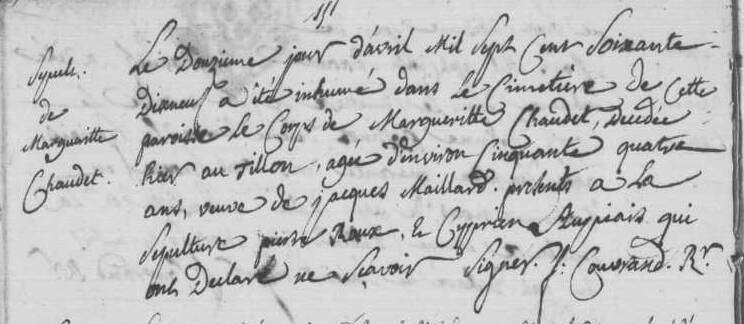 Sepult.
de
Margueritte
Chaudet.
Le Douzieme jour d'avril Mil Sept Cent Soixante
Dixneuf a été inhumé dans Le Cimetiere de Cette
paroisse Le Corps de Margueritte Chaudet, decedée
hier au Tillon, agée d'environ Cinquante quatre
ans, veuve de jacques Maillard. présents a La
Sepulture pierre Roux, Et Cyprien qui
ont Declaré ne Scavoir Signer. Couvrand. Rr.